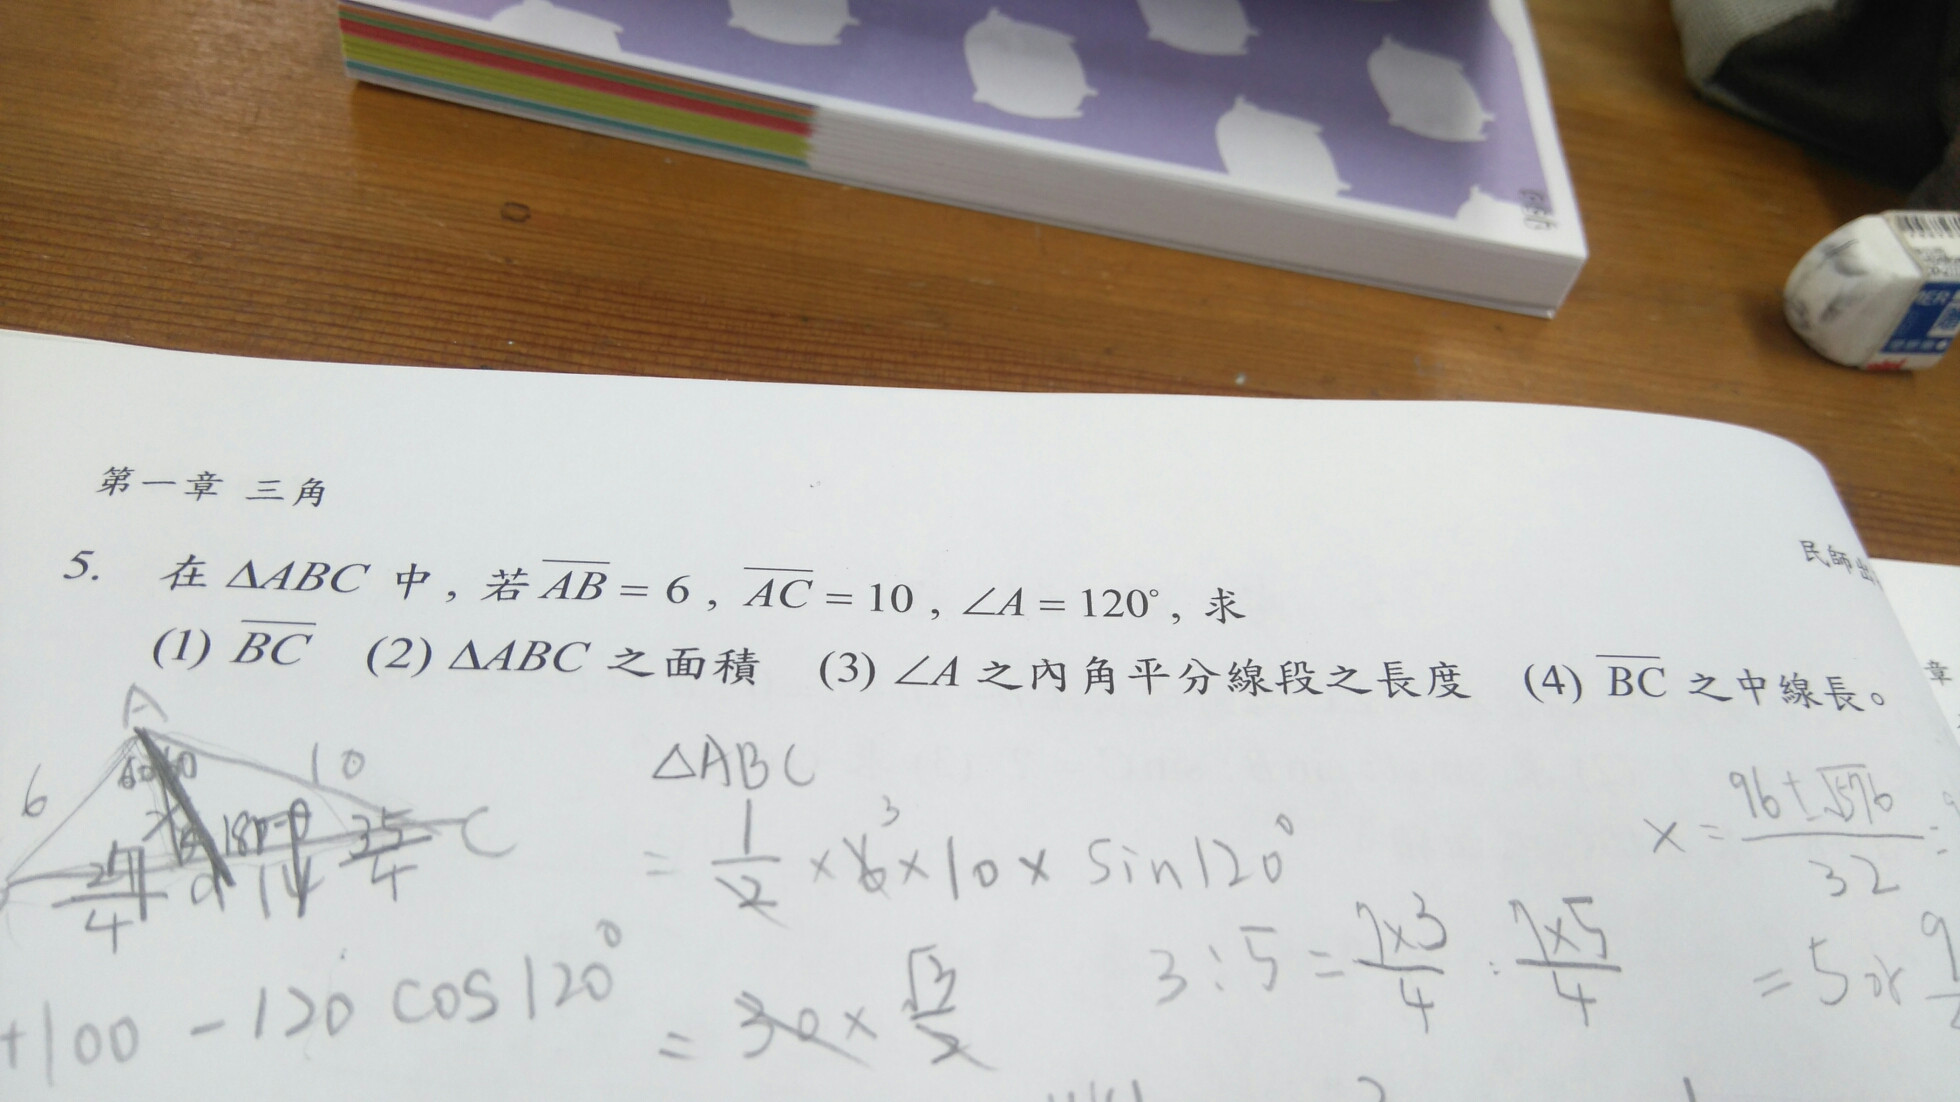 第一章 三角
民師出
5. 在 ΔABC 中，若 \overline{AB} = 6，\overline{AC} = 10，∠A = 120°，求
(1) \overline{BC} (2) ΔABC 之面積 (3) ∠A 之內角平分線段之長度 (4) \overline{BC} 之中線長。
章
A
6
10
C
△ABC
= \frac{1}{2} × 6 3 × 10 × sin120°
= 30 × \frac{√3}{2}
+100 - 120 cos120°
3 : 5 = \frac{7×3}{4} : \frac{7×5}{4}
x = \frac{96 ± √576}{32} =
= 5 or